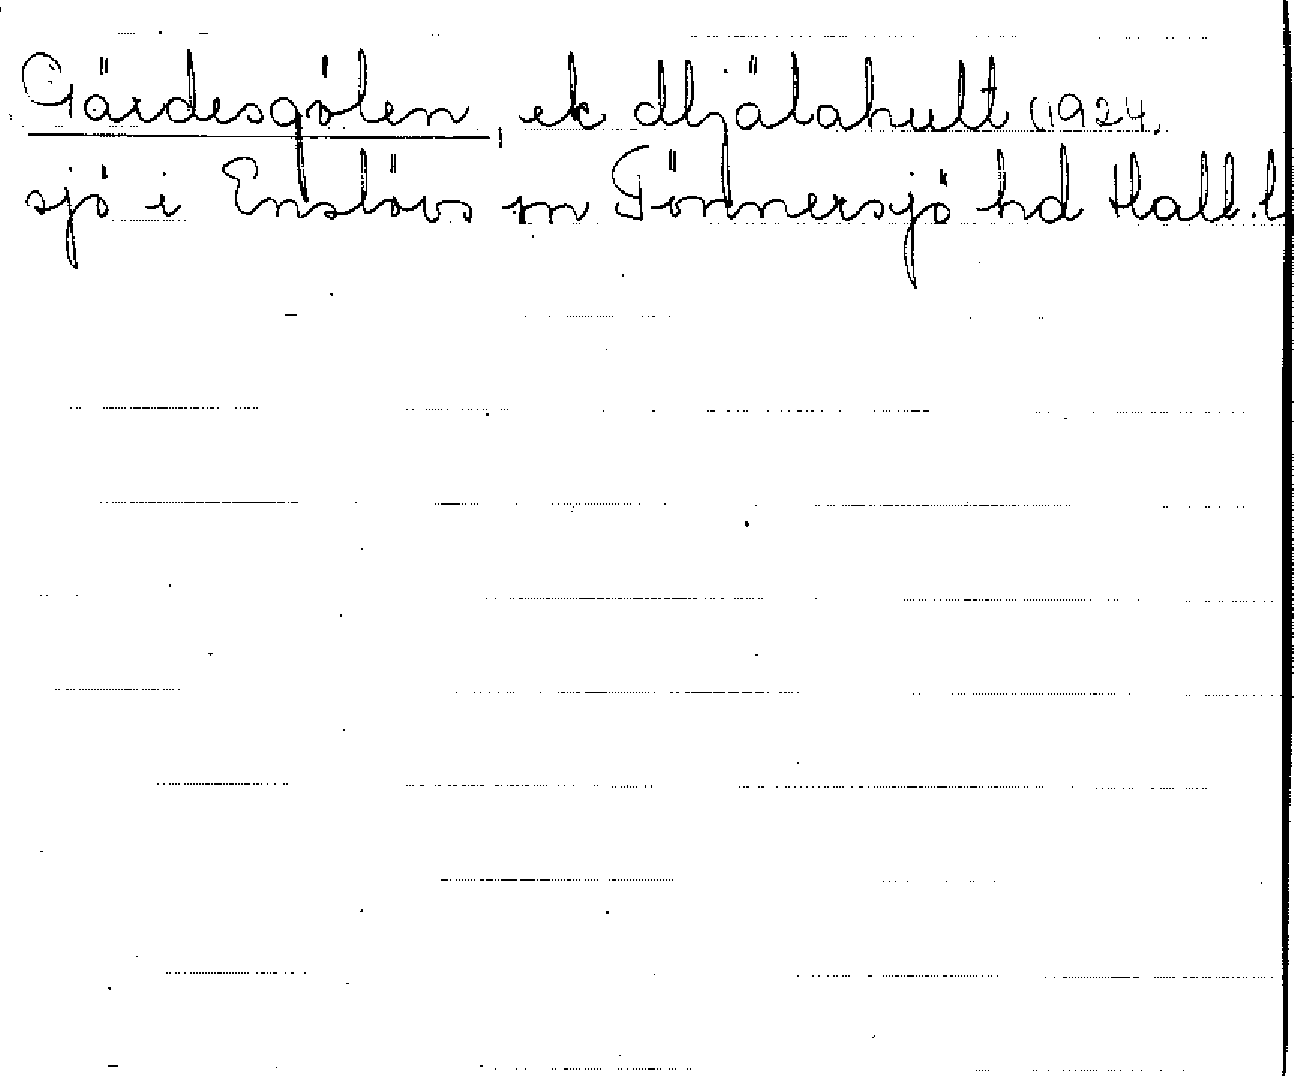 Gärdesgölen, ek Mjälahult (1924,
sjö i Enslövs sn Tönnersjö hd Hall.l